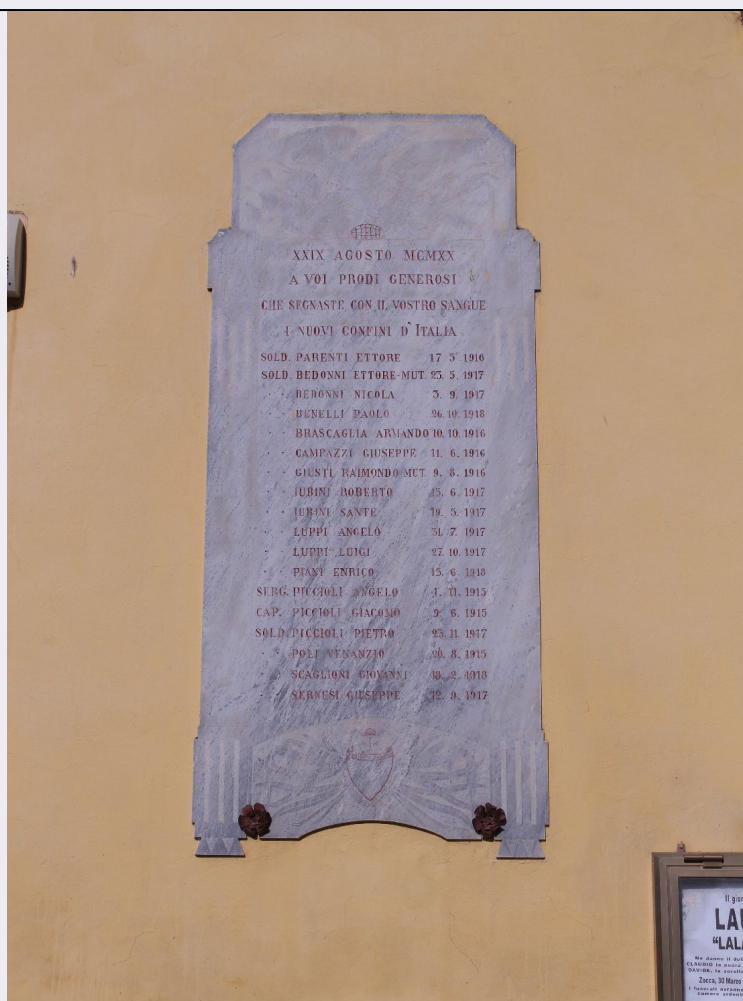 XXIX AGOSTO MCMXX
A VOI PRODI GENEROSI
CHE SEGNASTE CON IL VOSTRO SANGUE
I NUOVI CONFINI D'ITALIA
SOLD. PARENTI ETTORE 17 5 1916
SOLD. BEDONNI ETTORE-MUT. 23. 5. 1917
" " BEDONNI NICOLA 3. 9. 1917
" " BENELLI PAOLO 26. 10. 1918
" " BRASCAGLIA ARMANDO 10. 10. 1916
" " CAMPAZZI GIUSEPPE 11. 6. 1916
" " GIUSTI RAIMONDO-MUT. 9. 8. 1916
" " IUBINI ROBERTO 15. 6. 1917
" " IUBINI SANTE 19. 5. 1917
" " LUPPI ANGELO 31. 7. 1917
" " LUPPI LUIGI 27. 10. 1917
" " PIANI ENRICO 15. 6. 1918
SERG. PICCIOLI ANGELO 1. 11. 1915
CAP. PICCIOLI GIACOMO 9. 6. 1915
SOLD. PICCIOLI PIETRO 25. 11. 1917
" " POLI VENANZIO 20. 8. 1915
" " SCAGLIONI GIOVANNI 18. 2. 1918
" " SERNESI GIUSEPPE 12. 9. 1917
Il
"LALA
Ne danno il
CLAUDIO la nuora
DAVIDE, le
Zocca, 30 Marzo
I funerali
camera